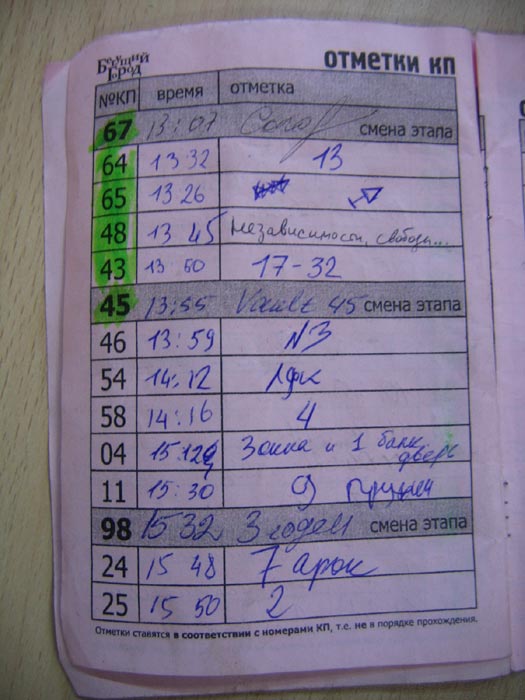 Бегущий
Город
ОТМЕТКИ КП
№КП время отметка
67 13:07 смена этапа
64 13 32 13
65 13 26
48 13 45 Независимости, свободы...
43 13 50 17-32
45 13:55 Vault 45 смена этапа
46 13:59 N3
54 14:12 ЛФК
58 14:16 4
04 15:12 Зоина и 1 балк
дверь
11 15:30
98 15 32 смена этапа
24 15 48 7 арок
25 15 50 2
Отметки ставятся в соответствии с номерами КП, т.е. не в порядке прохождения.